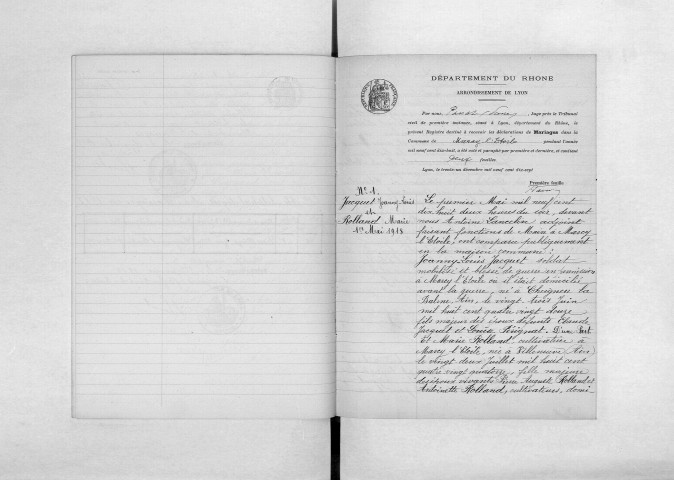 DÉPARTEMENT DU RHONE
ARRONDISSEMENT DE LYON
Par nous Juge près le Tribunal
civil de première instance, séant à Lyon, département du Rhône, le
présent Registre destiné à recevoir les déclarations de Mariages dans la
Commune de Marcy l'Etoile pendant l'année
mil neuf cent dix-huit, a été coté et paraphé par première et dernière, et contient
deux feuilles
Lyon, le trente-un décembre mil neuf cent dix-sept
Première feuille
N° 1.
Jacquet Joanny Louis
et
Rolland Marie
1er Mai 1918
Le premier Mai mil neuf cent
dix huit deux heures du soir, devant
nous Antoine Lancelin adjoint
faisant fonctions de Maire à Marcy
l'Etoile, ont comparu publiquement
en la maison commune :
Joanny Louis Jacquet soldat
mobilisé et blessé de guerre en
à Marcy l'Etoile où il était domicilié
avant la guerre, né à
Ain, le vingt trois Juin
mil huit cent quatre vingt douze
fils majeur des époux défunts
Jacquet et Louise D'une Part
Et Marie Rolland cultivatrice à
Marcy l'Etoile, née à Villeneuve Ain
le vingt deux Juillet mil huit cent
quatre vingt quatorze, fille majeure
des époux vivants August Rolland et
Antoinette Rolland, cultivateurs, domi-